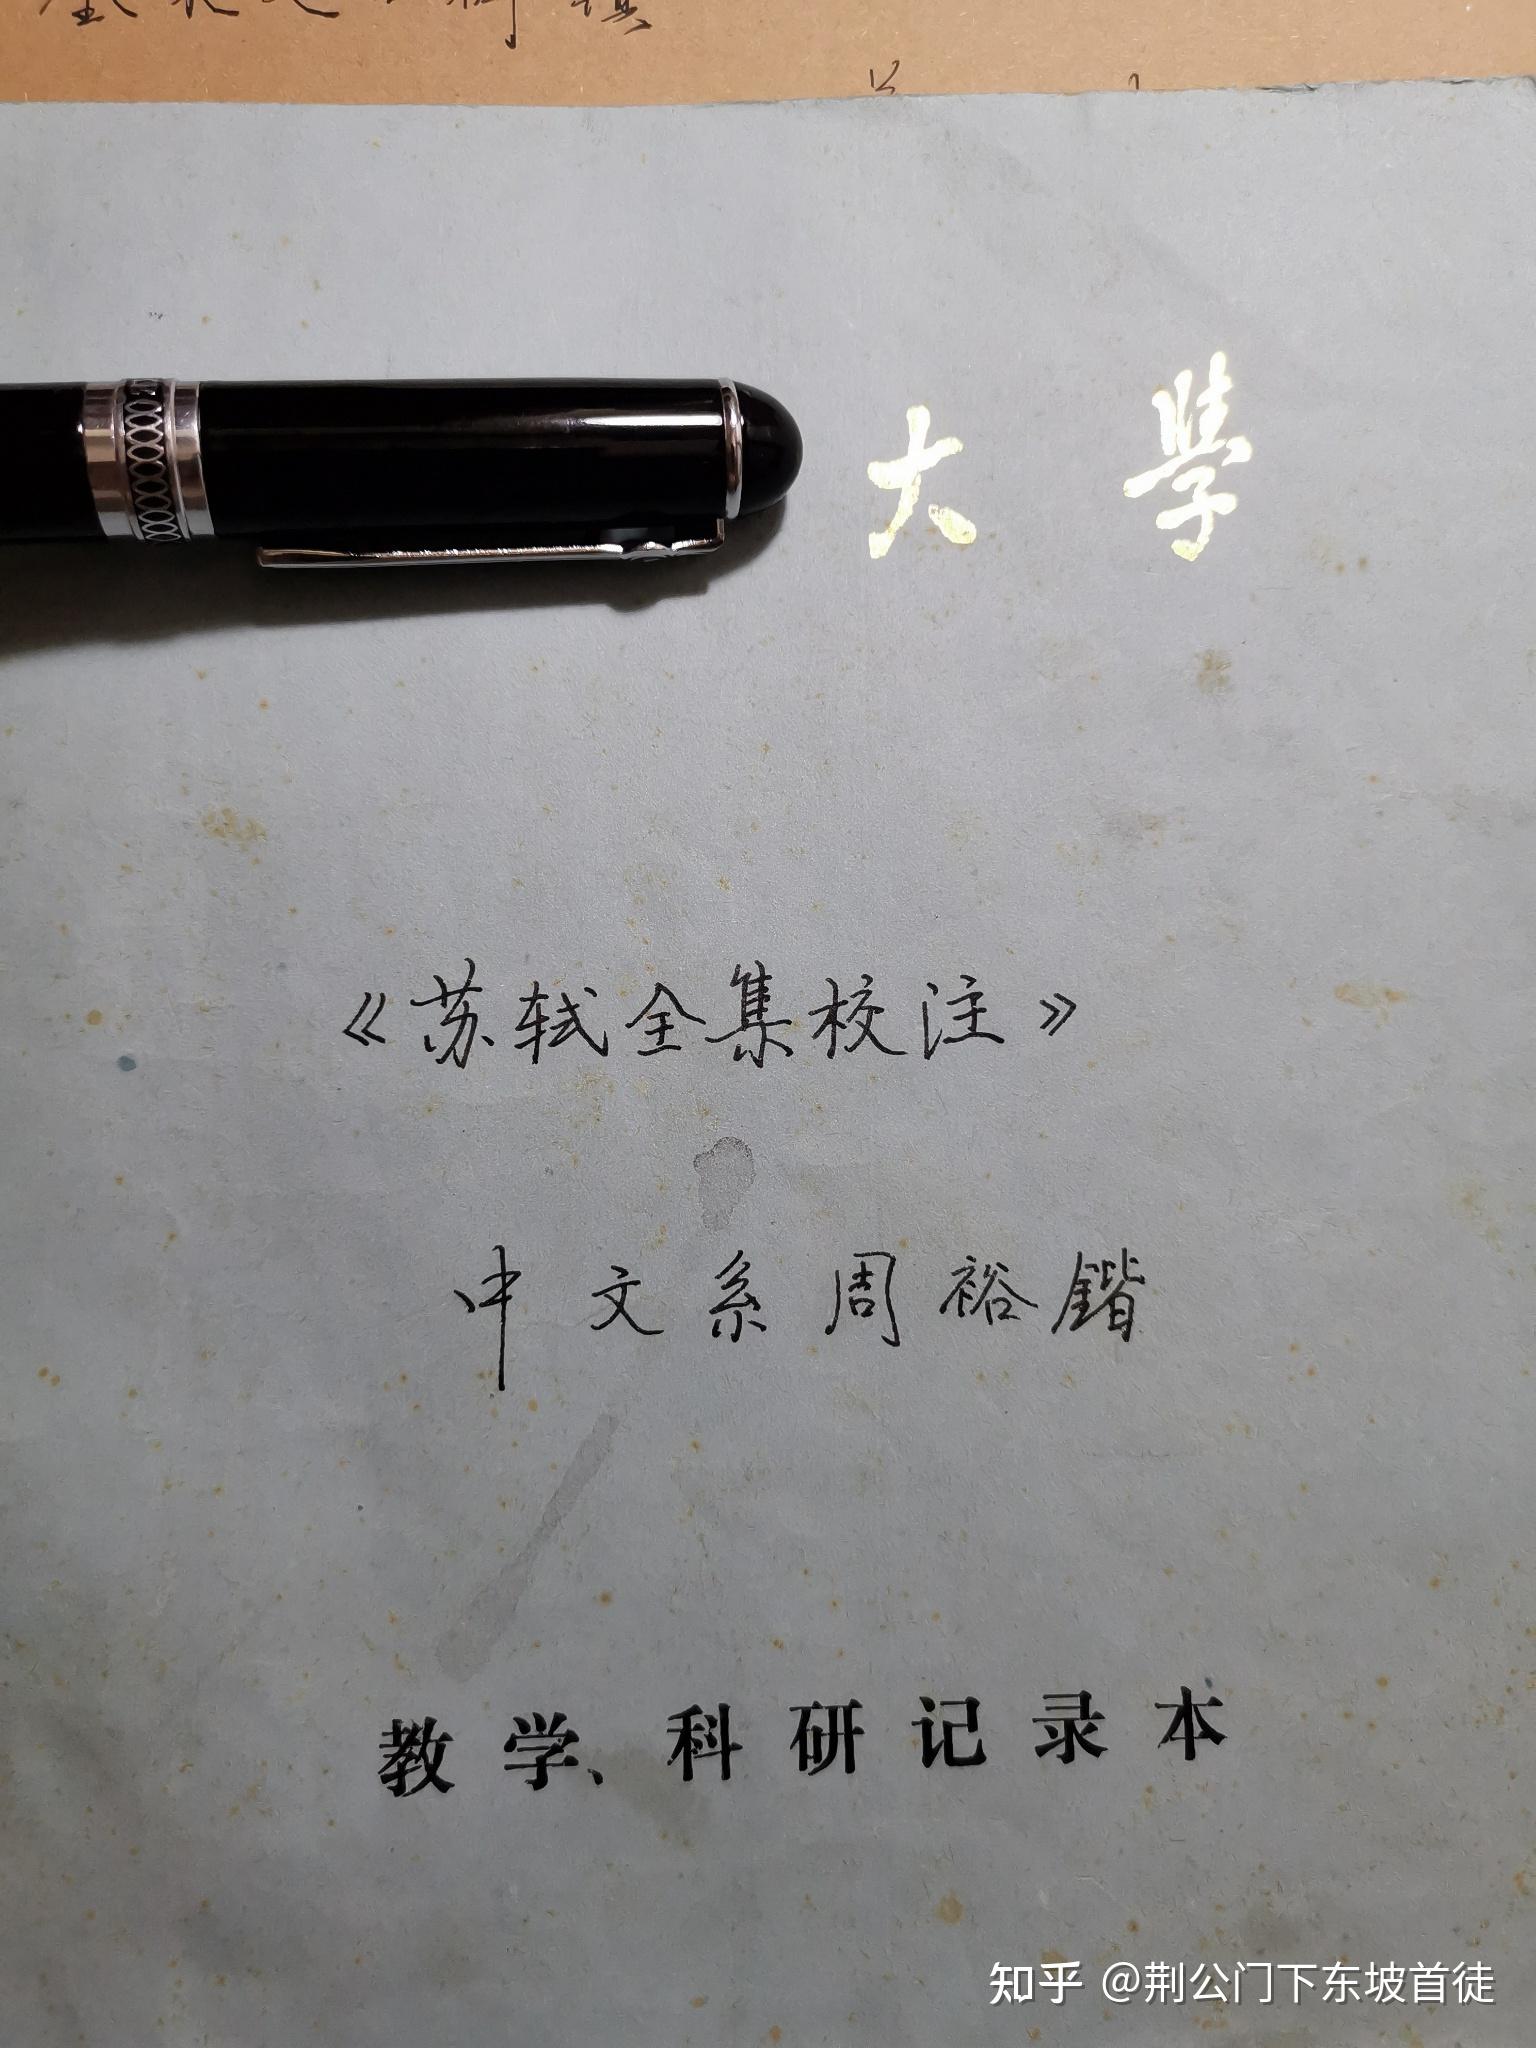 大學
《苏轼全集校注》
中文系周裕鍇
教学、科研记录本
知乎 @荆公门下东坡首徒